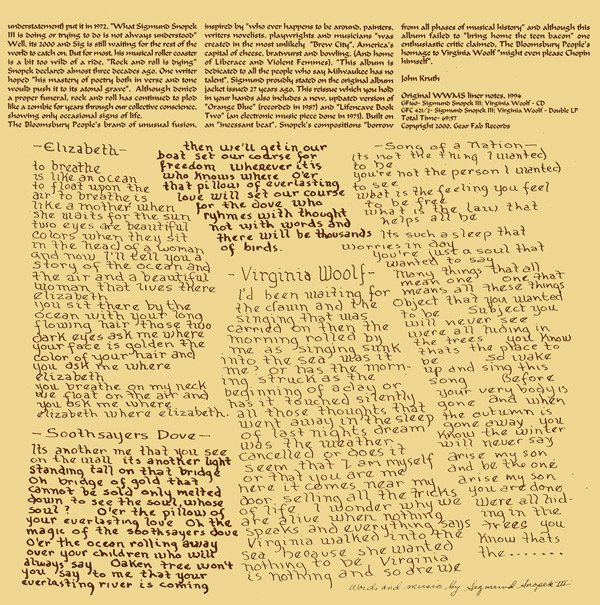 understatement) put it in 1972, "What Sigmund Snopek
III is doing or trying to do is not always understood"
Well, its 2000 and Sig is still waiting for the rest of the
world to catch on. But for most, his musical roller coaster
is a bit too wild of a ride. "Rock and roll is dying"
Snopek declared almost three decades ago. One writer
hoped "his mastery of poetry both in verse and tene
would push it to its atonal grave". Although denied
a proper funeral, rock and roll has continued to plod
like a zombie for years through our collective conscience,
showing only occasional signs of life.
The Bloomsbury People's brand of unusual fusion,
inspired by "who ever happens to be around, painters,
writers novelists, playwrights and musicians "was
created in the most unlikely "Brew City", America's
capital of cheese, bratwurst and bowling. (And home
of Liberace and Violent Femmes). "This album is
dedicated to all the people who say Milwaukee has no
talent". Sigmund proudly stated on the original album
jacket issued 27 years ago. This reissue which you hold
in your hands also includes a new, updated version of
"Orange Blue" (recorded in 1987) and "Lifencave Book
Two" (an electronic music piece done in 1973). Built on
an "incessant beat", Snopek's compositions "borrow
from all phases of musical history" and although this
album failed to "bring home the teen bacon" one
enthusiastic critic claimed, The Bloomsbury People's
homage to Virginia Woolf "might even please Chopin
himself".
John Kruth
Original WWMS liner notes, 1994
GF160- Sigmund Snopek III: Virginia Woolf - CD
GFC 421/2- Sigmund Snopek III: Virginia Woolf - Double LP
Total Time- 69:57
Copyright 2000, Gear Fab Records
-Elizabeth-
to breathe
is like an ocean
to float upon the
air to breathe is
like a mother when
she waits for the sun
two eyes are beautiful
colors when they sit
in the head of a woman
and now I'll tell you a
story of the ocean and
the air and a beautiful
woman that lives there
elizabeth
you sit there by the
ocean with your long
flowing hair those two
dark eyes ask me where
your face is golden the
color of your hair and
you ask me where
elizabeth
you breathe on my neck
we float on the air and
you ask me where
elizabeth where elizabeth.
-Soothsayers Dove-
Its another me that you see
on the wall its another light
standing tall on that bridge
Oh bridge of gold that
cannot be sold only melted
down to see the soul, whose
soul? O'er the pillow of
your everlasting love Oh the
magic of the soothsayers dove
O'er the ocean rolling away
over your children who will
always say Oaken tree won't
you say to me that your
everlasting river is coming
then we'll get in our
boat set our course for
freedom wherever it is
who knows where O'er
that pillow of everlasting
love will set our course
for the dove who
ryhmes with thought
not with words and
there will be thousands
of birds.
-Virginia Woolf-
I'd been waiting for
the dawn and the
singing that was
carried on then the
morning rolled by
me as singing sunk
into the sea was it
me? or has the morn-
ing struck as the
beginning of aday or
has it touched silently
all those thoughts that
went away in the sleep
of last nights dream
was the weather
cancelled or does it
seem that I am myself
or that you are me
here it comes near my
door selling all the tricks
of life. I wonder why we
are alive when nothing
speaks and everything says
Virginia walked into the
sea because she wanted
nothing to be Virginia
is nothing and so are we
-Song of a Nation-
(Its not the thing I wanted)
to be
you're not the person I wanted
to see
what is the feeling you feel
to be free
what is the law that
helps all be
Its such a sleep that
worries in day
You're just a soul that
wanted to say
Many things that all
mean one one that
means all these things
Object that you wanted
to be Subject you
will never see
were all hiding in
the trees you know
thats the place to
be So wake
up and sing this
song Before
your very body is
gone and when
the autumn is
gone away you
know the winter
will never say
arise my son
and be the one
arise my son
you are done
were all hid-
ing in the
trees you
know thats
the.......
words and music by Sigmund Snopek III